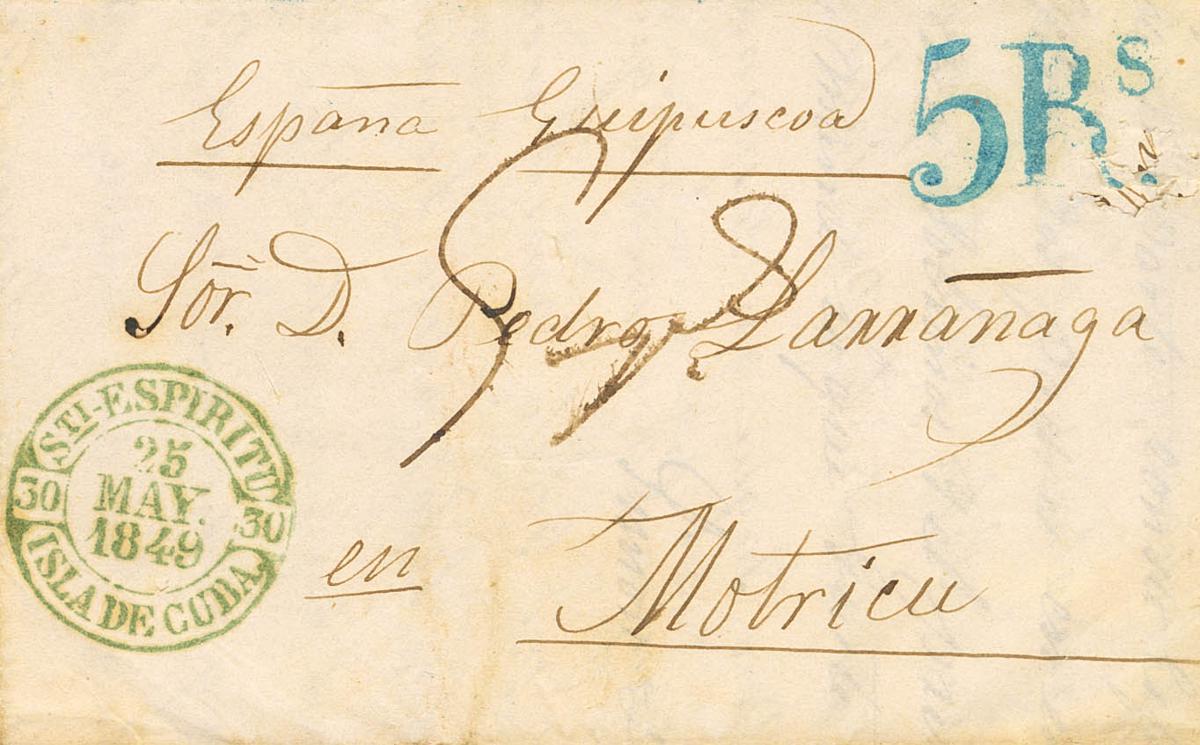 España Guipuscoa
5 Rs
Sõr. D. Pedro Larrañaga
STI-ESPIRITU
25
MAY.
1849
30 30
ISLA DE CUBA
en Motricu